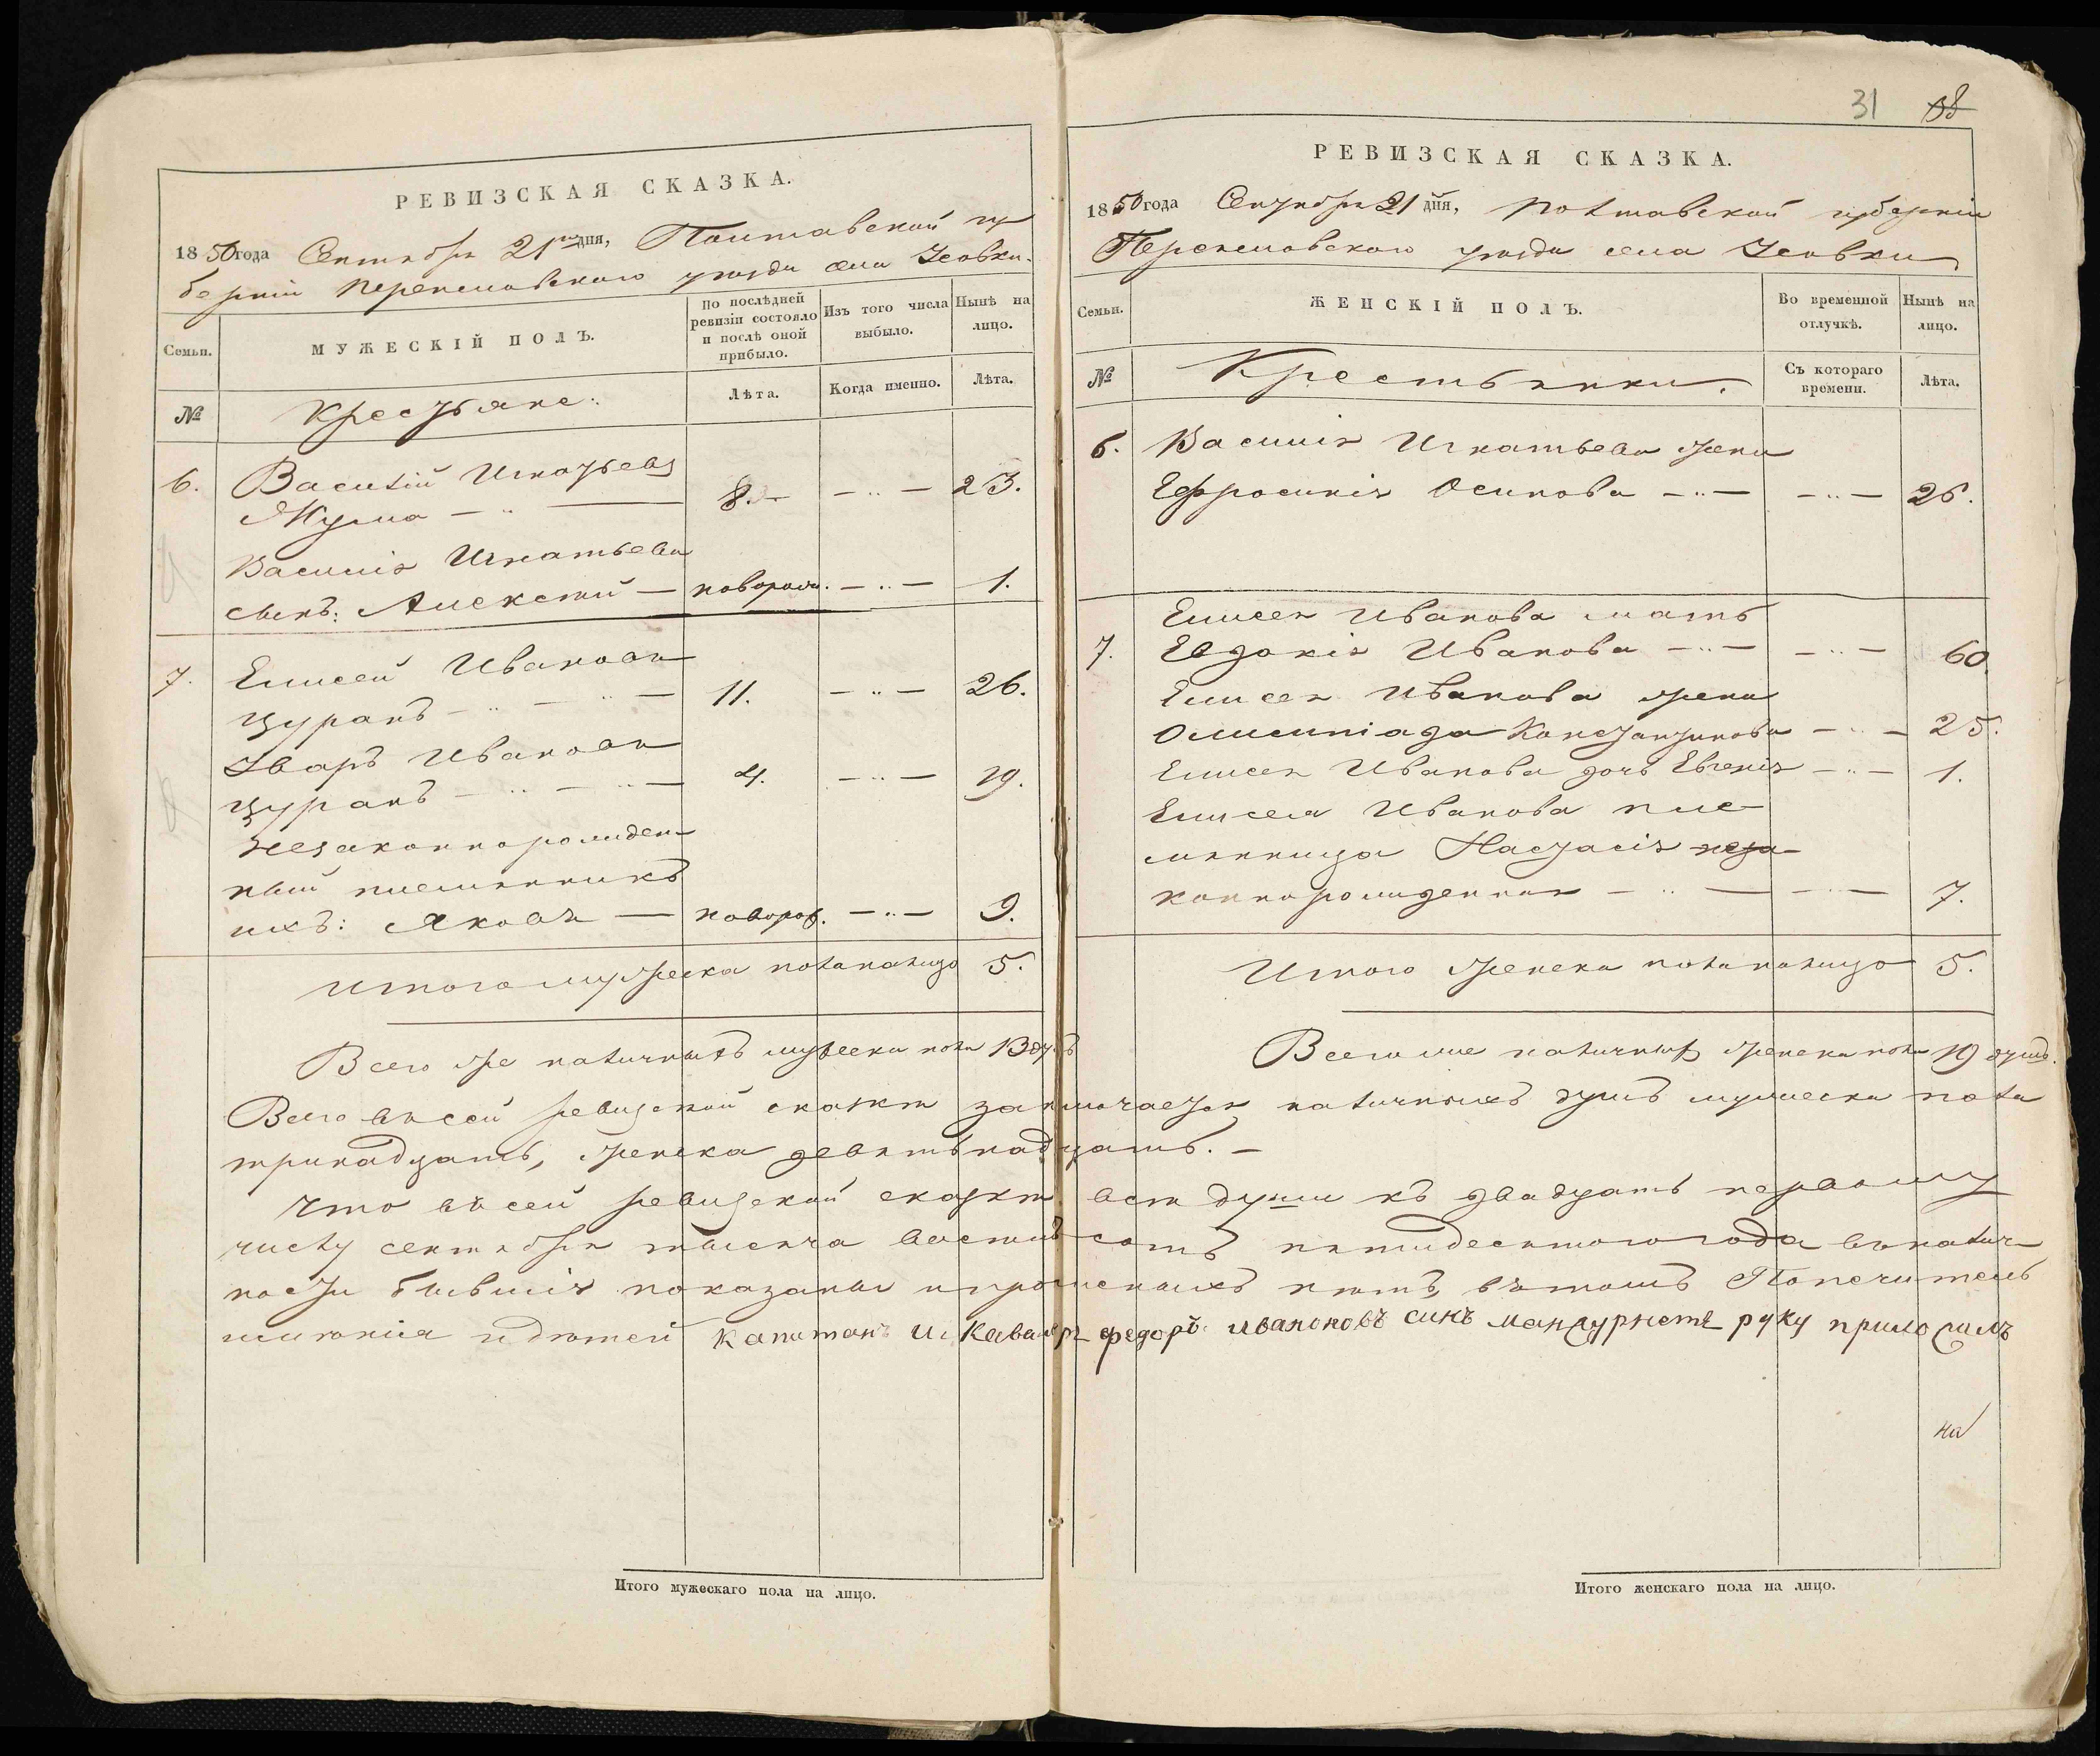 РЕВИЗСКАЯ СКАЗКА.
1850 года Сентября 21го дня, Полтавской гу
берніи Переяславскаго уѣзда села Усовки.
Семьи.
МУЖЕСКІЙ ПОЛЪ.
По послѣдней ревизіи состояло и послѣ оной прибыло.
Изъ того числа выбыло.
Нынѣ на лицо.
№
Крестьяне.
Лѣта.
Когда именно.
Лѣта.
6. Василій Игнатьевъ
Жума — 8. — 23.
Василія Игнатьева
сынъ: Алексѣй — новорож. — 1.
7. Елисей Ивановъ
Цуранъ — 11. — 26.
Уваръ Ивановъ
Цуранъ — 4. — 19.
Незаконнорожден
ный племянникъ
ихъ: Яковъ — новорож. — 9.
Итого мужеска пола налицо 5.
Всего же наличныхъ мужеска пола 13 душъ
31 38
РЕВИЗСКАЯ СКАЗКА.
1850 года Сентября 21 дня, Полтавской губерніи
Переяславскаго уѣзда села Усовки
Семьи.
ЖЕНСКІЙ ПОЛЪ.
Во временной отлучкѣ.
Нынѣ на лицо.
№
Крестьянки.
Съ котораго времени.
Лѣта.
6. Василія Игнатьева жена
Ефросинія Осипова — — 26.
Елисея Иванова мать
7. Евдокія Иванова — — 60
Елисея Иванова жена
Олимпіада Константинова — 25.
Елисея Иванова дочь Евгенія — 1.
Елисея Иванова пле
мянница Настасія неза
коннорожденная — — 7.
Итого женска пола налицо 5.
Всего же наличныхъ женска пола 19 душъ.
Всего въ сей ревизской сказкѣ заключается наличныхъ душъ мужеска пола
тринадцать, женска девятнадцать. —
Что въ сей ревизской сказкѣ всѣ души къ двадцать первому
числу сентября тысяча восемь сотъ пятидесятого года въ налич
ности бывшія показаны и прописныхъ нѣтъ, въ томъ Попечитель
имѣнія и дѣтей капитанъ и Кавалеръ федоръ ивановъ синъ руку приложилъ
на
Итого мужескаго пола на лицо.
Итого женскаго пола на лицо.